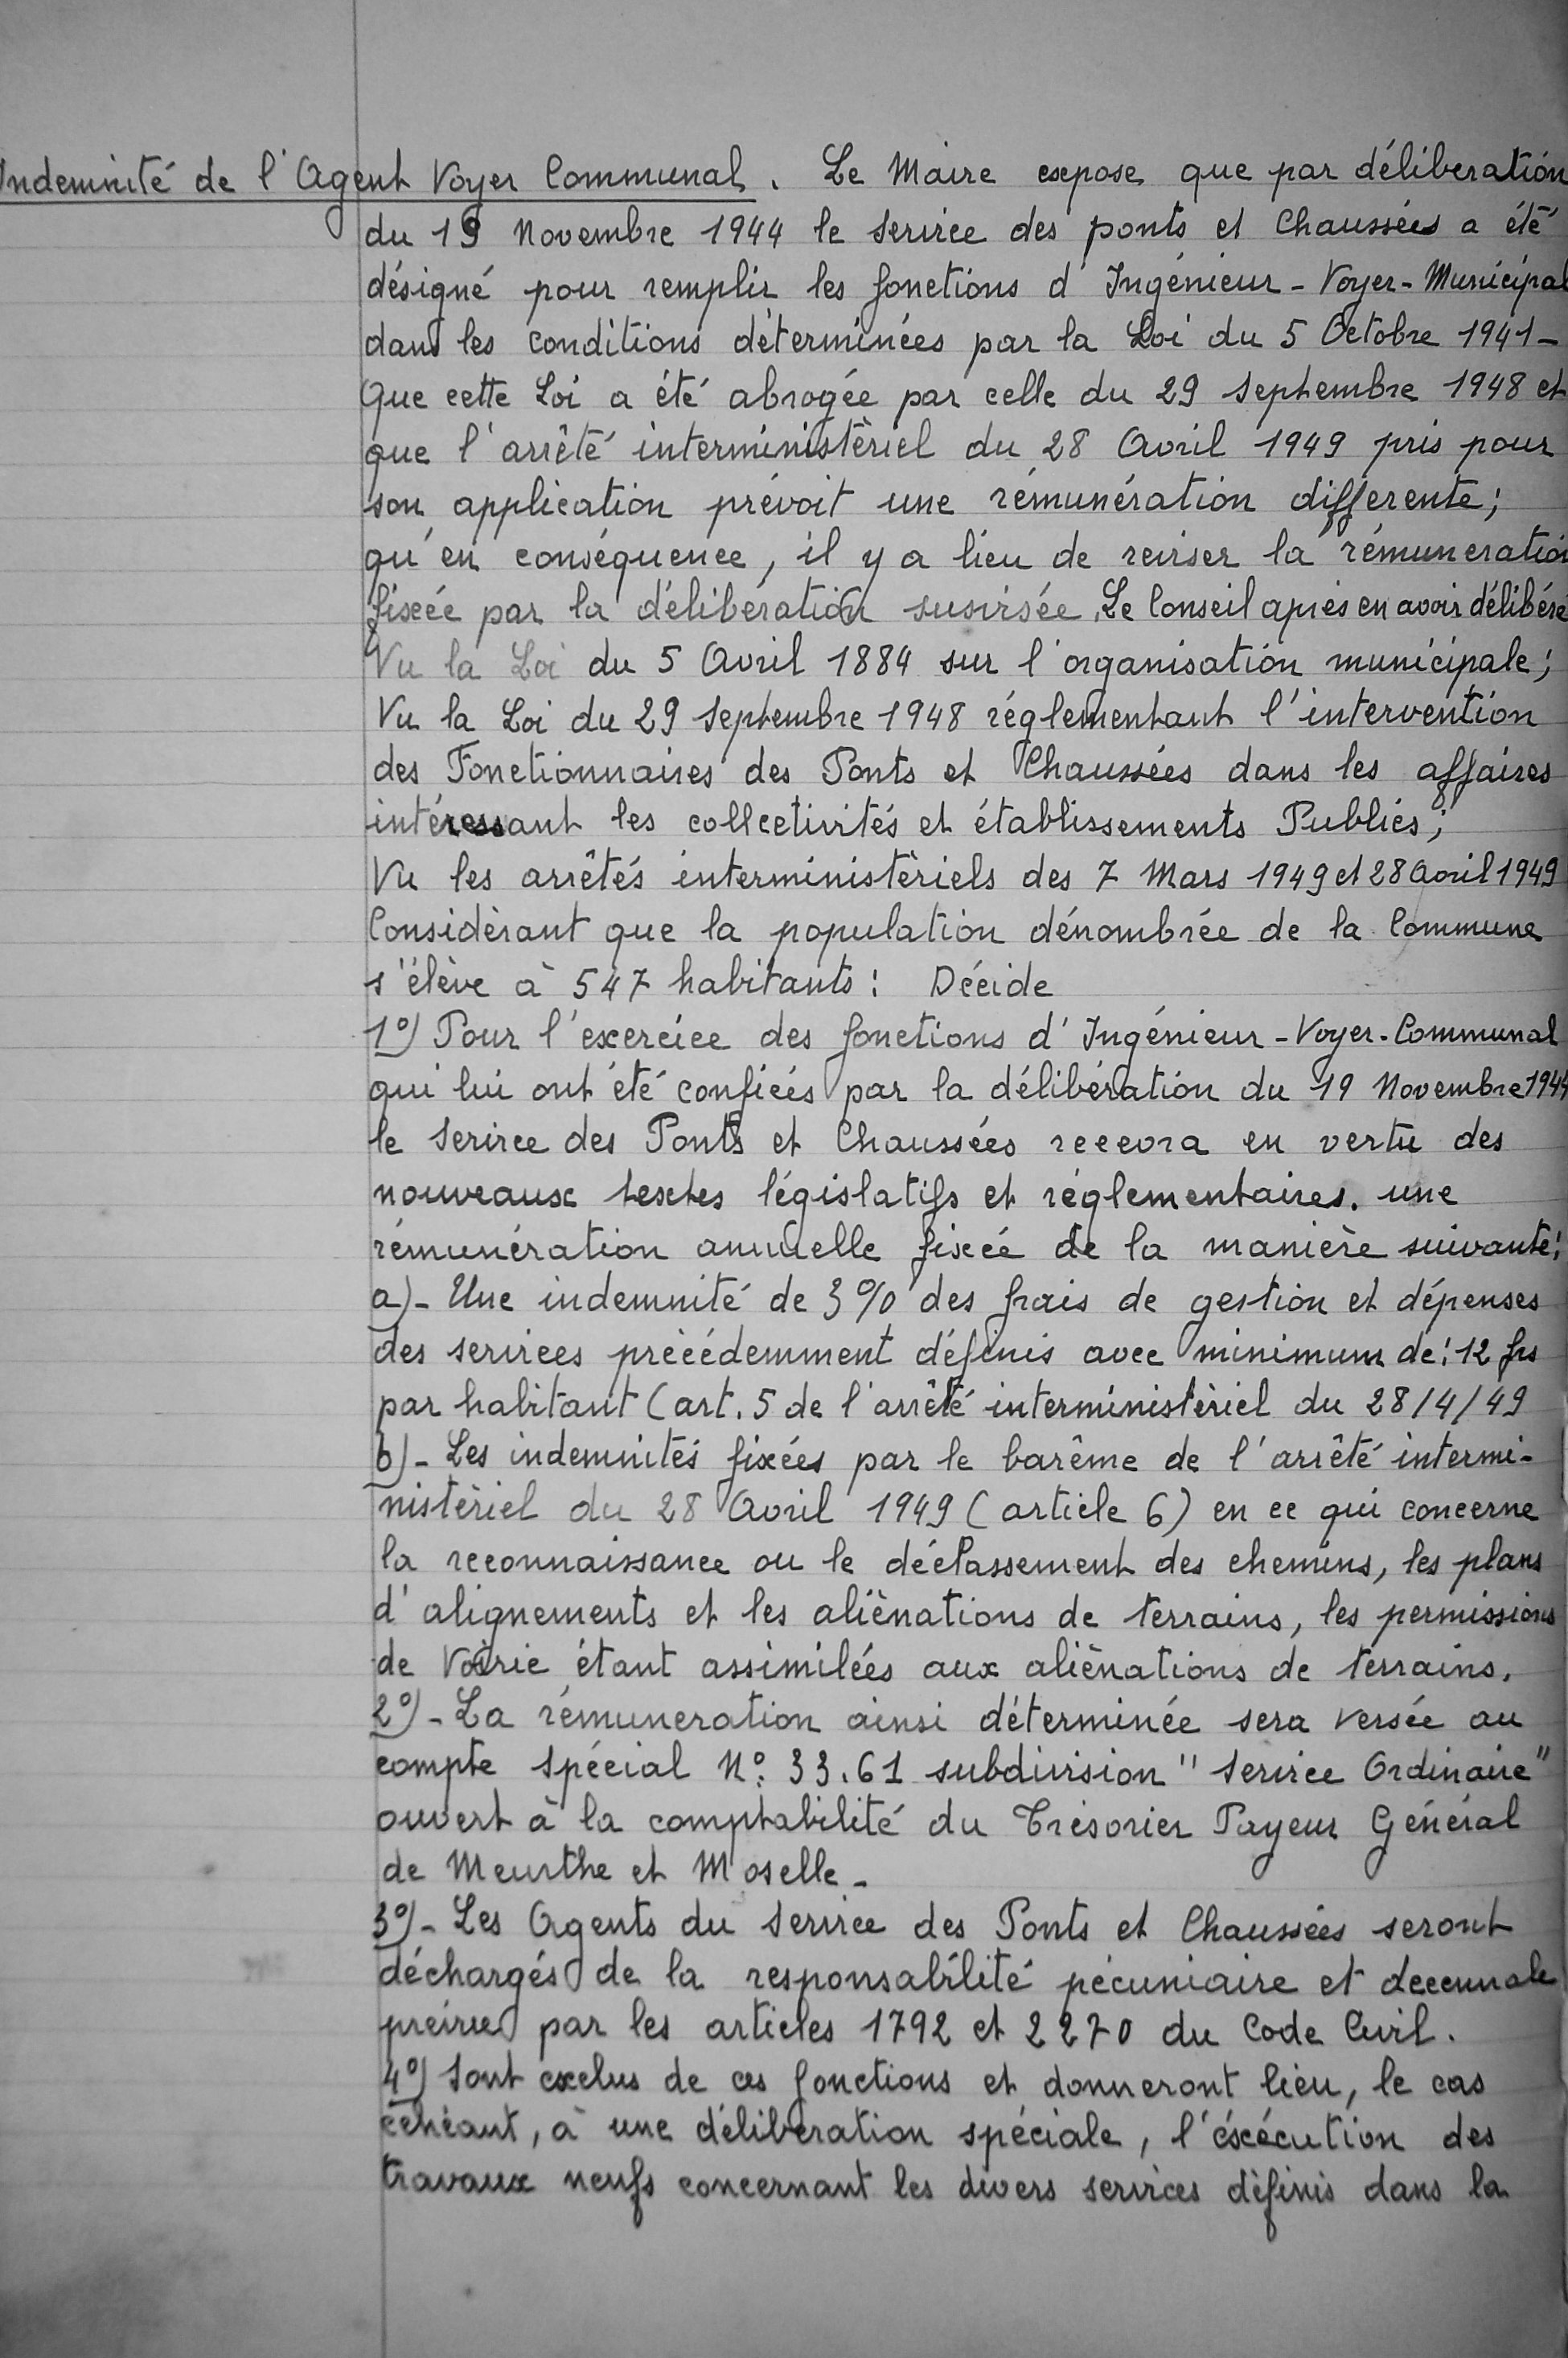 Indemnité de l'Agent Voyer Communal. Le Maire expose que par délibération
du 19 Novembre 1944 le service des ponts et Chaussées a été
désigné pour remplir les fonctions d'Ingénieur-Voyer-Municipal
dans les conditions déterminées par la Loi du 5 Octobre 1941-
Que cette Loi a été abrogée par celle du 29 Septembre 1948 et
que l'arrêté interministèriel du 28 Avril 1949 pris pour
son application prévoit une rémunération differente;
qu'en conséquence, il y a lieu de reviser la rémuneration
fixée par la délibération susvisée. Le Conseil après en avoir délibéré
Vu la Loi du 5 Avril 1884 sur l'organisation municipale;
Vu la Loi du 29 Septembre 1948 réglementant l'intervention
des Fonctionnaires des Ponts et Chaussées dans les affaires
intéressant les collectivités et établissements Publics;
Vu les arrêtés interministèriels des 7 Mars 1949 et 28 Avril 1949
Considèrant que la population dénombrée de la Commune
s'élève à 547 habitants: Décide
1°) Pour l'exercice des fonctions d'Ingénieur-Voyer-Communal
qui lui ont été confiées par la délibération du 19 Novembre 1944
le Service des Ponts et Chaussées recevra en vertu des
nouveaux textes législatifs et réglementaires. une
rémunération annuelle fixée de la manière suivante:
a)- Une indemnité de 3% des frais de gestion et dépenses
des services précédemment définis avec minimum de: 12 frs
par habitant (art. 5 de l'arrêté interministèriel du 28/4/49
b)- Les indemnités fixées par le barême de l'arrêté intermi-
nistèriel du 28 Avril 1949 (article 6) en ce qui concerne
la reconnaissance ou le déclassement des chemins, les plans
d'alignements et les aliènations de terrains, les permissions
de Voirie étant assimilées aux aliènations de terrains.
2°)- La rémuneration ainsi déterminée sera versée au
compte spécial N°: 33.61 subdivision "Service Ordinaire"
ouvert à la comptabilité du Trésorier Payeur Général
de Meurthe et Moselle-
3°)- Les Agents du Service des Ponts et Chaussées seront
déchargés de la responsabilité pécuniaire et decennale
prévue par les articles 1792 et 2270 du Code Civil.
4°) Sont exclus de ces fonctions et donneront lieu, le cas
échéant, à une délibération spéciale, l'éxécution des
travaux neufs concernant les divers services définis dans la